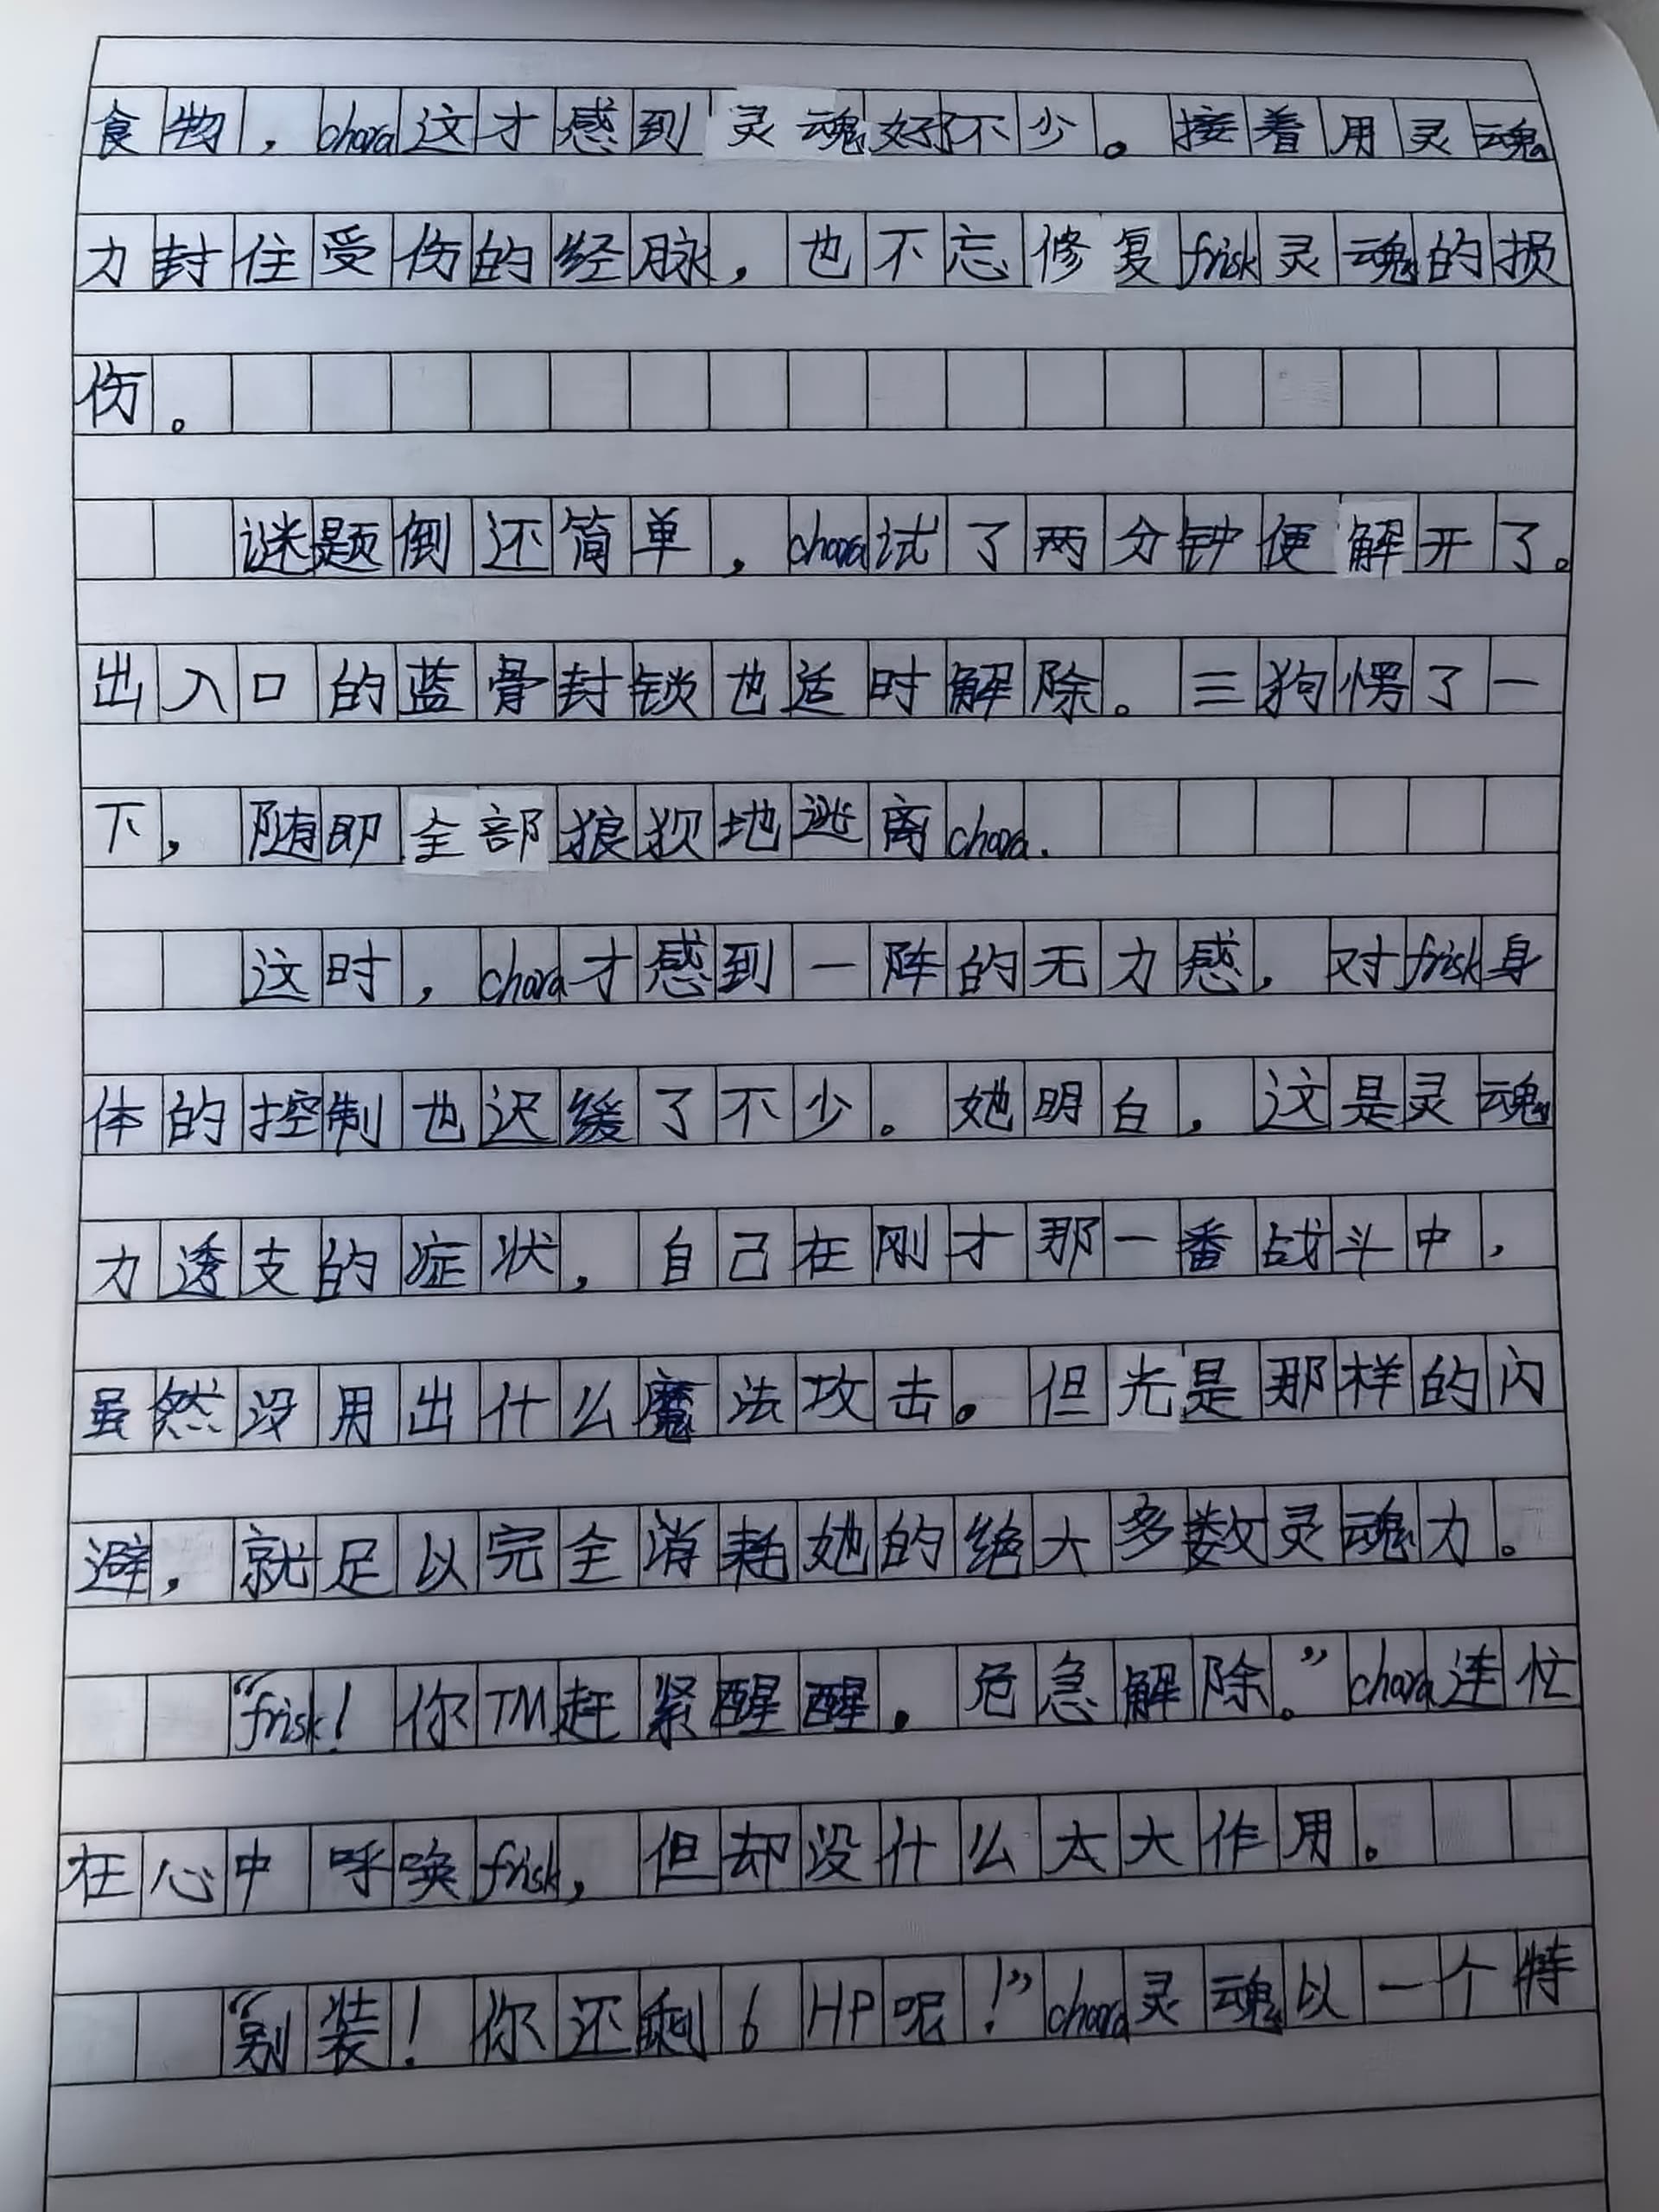 食物，chara这才感到灵魂好不少。接着用灵魂
力封住受伤的经脉，也不忘修复frisk灵魂的损
伤。
谜题倒还简单，chara试了两分钟便解开了。
出入口的蓝骨封锁也适时解除。三狗愣了一
下，随即全部狼狈地逃离chara.
这时，chara才感到一阵的无力感，对frisk身
体的控制也迟缓了不少。她明白，这是灵魂
力透支的症状，自己在刚才那一番战斗中，
虽然没用出什么魔法攻击。但光是那样的闪
避，就足以完全消耗她的绝大多数灵魂力。
“frisk！你TM赶紧醒醒，危急解除。”chara连忙
在心中呼唤frisk，但却没什么太大作用。
“别装！你还剩6HP呢！”chara灵魂以一个特